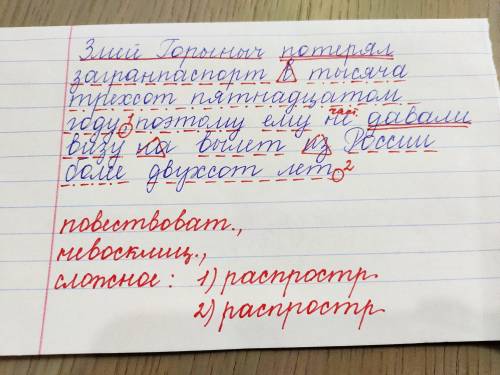 Змей Горыныч потерял
загранпаспорт в тысяча
трехсот пятнадцатом
году, 1 поэтому ему не част. давали
визу на вылет из России
более двухсот лет. 2
повествоват.,
невосклиц.,
сложное: 1) распростр.
2) распростр.